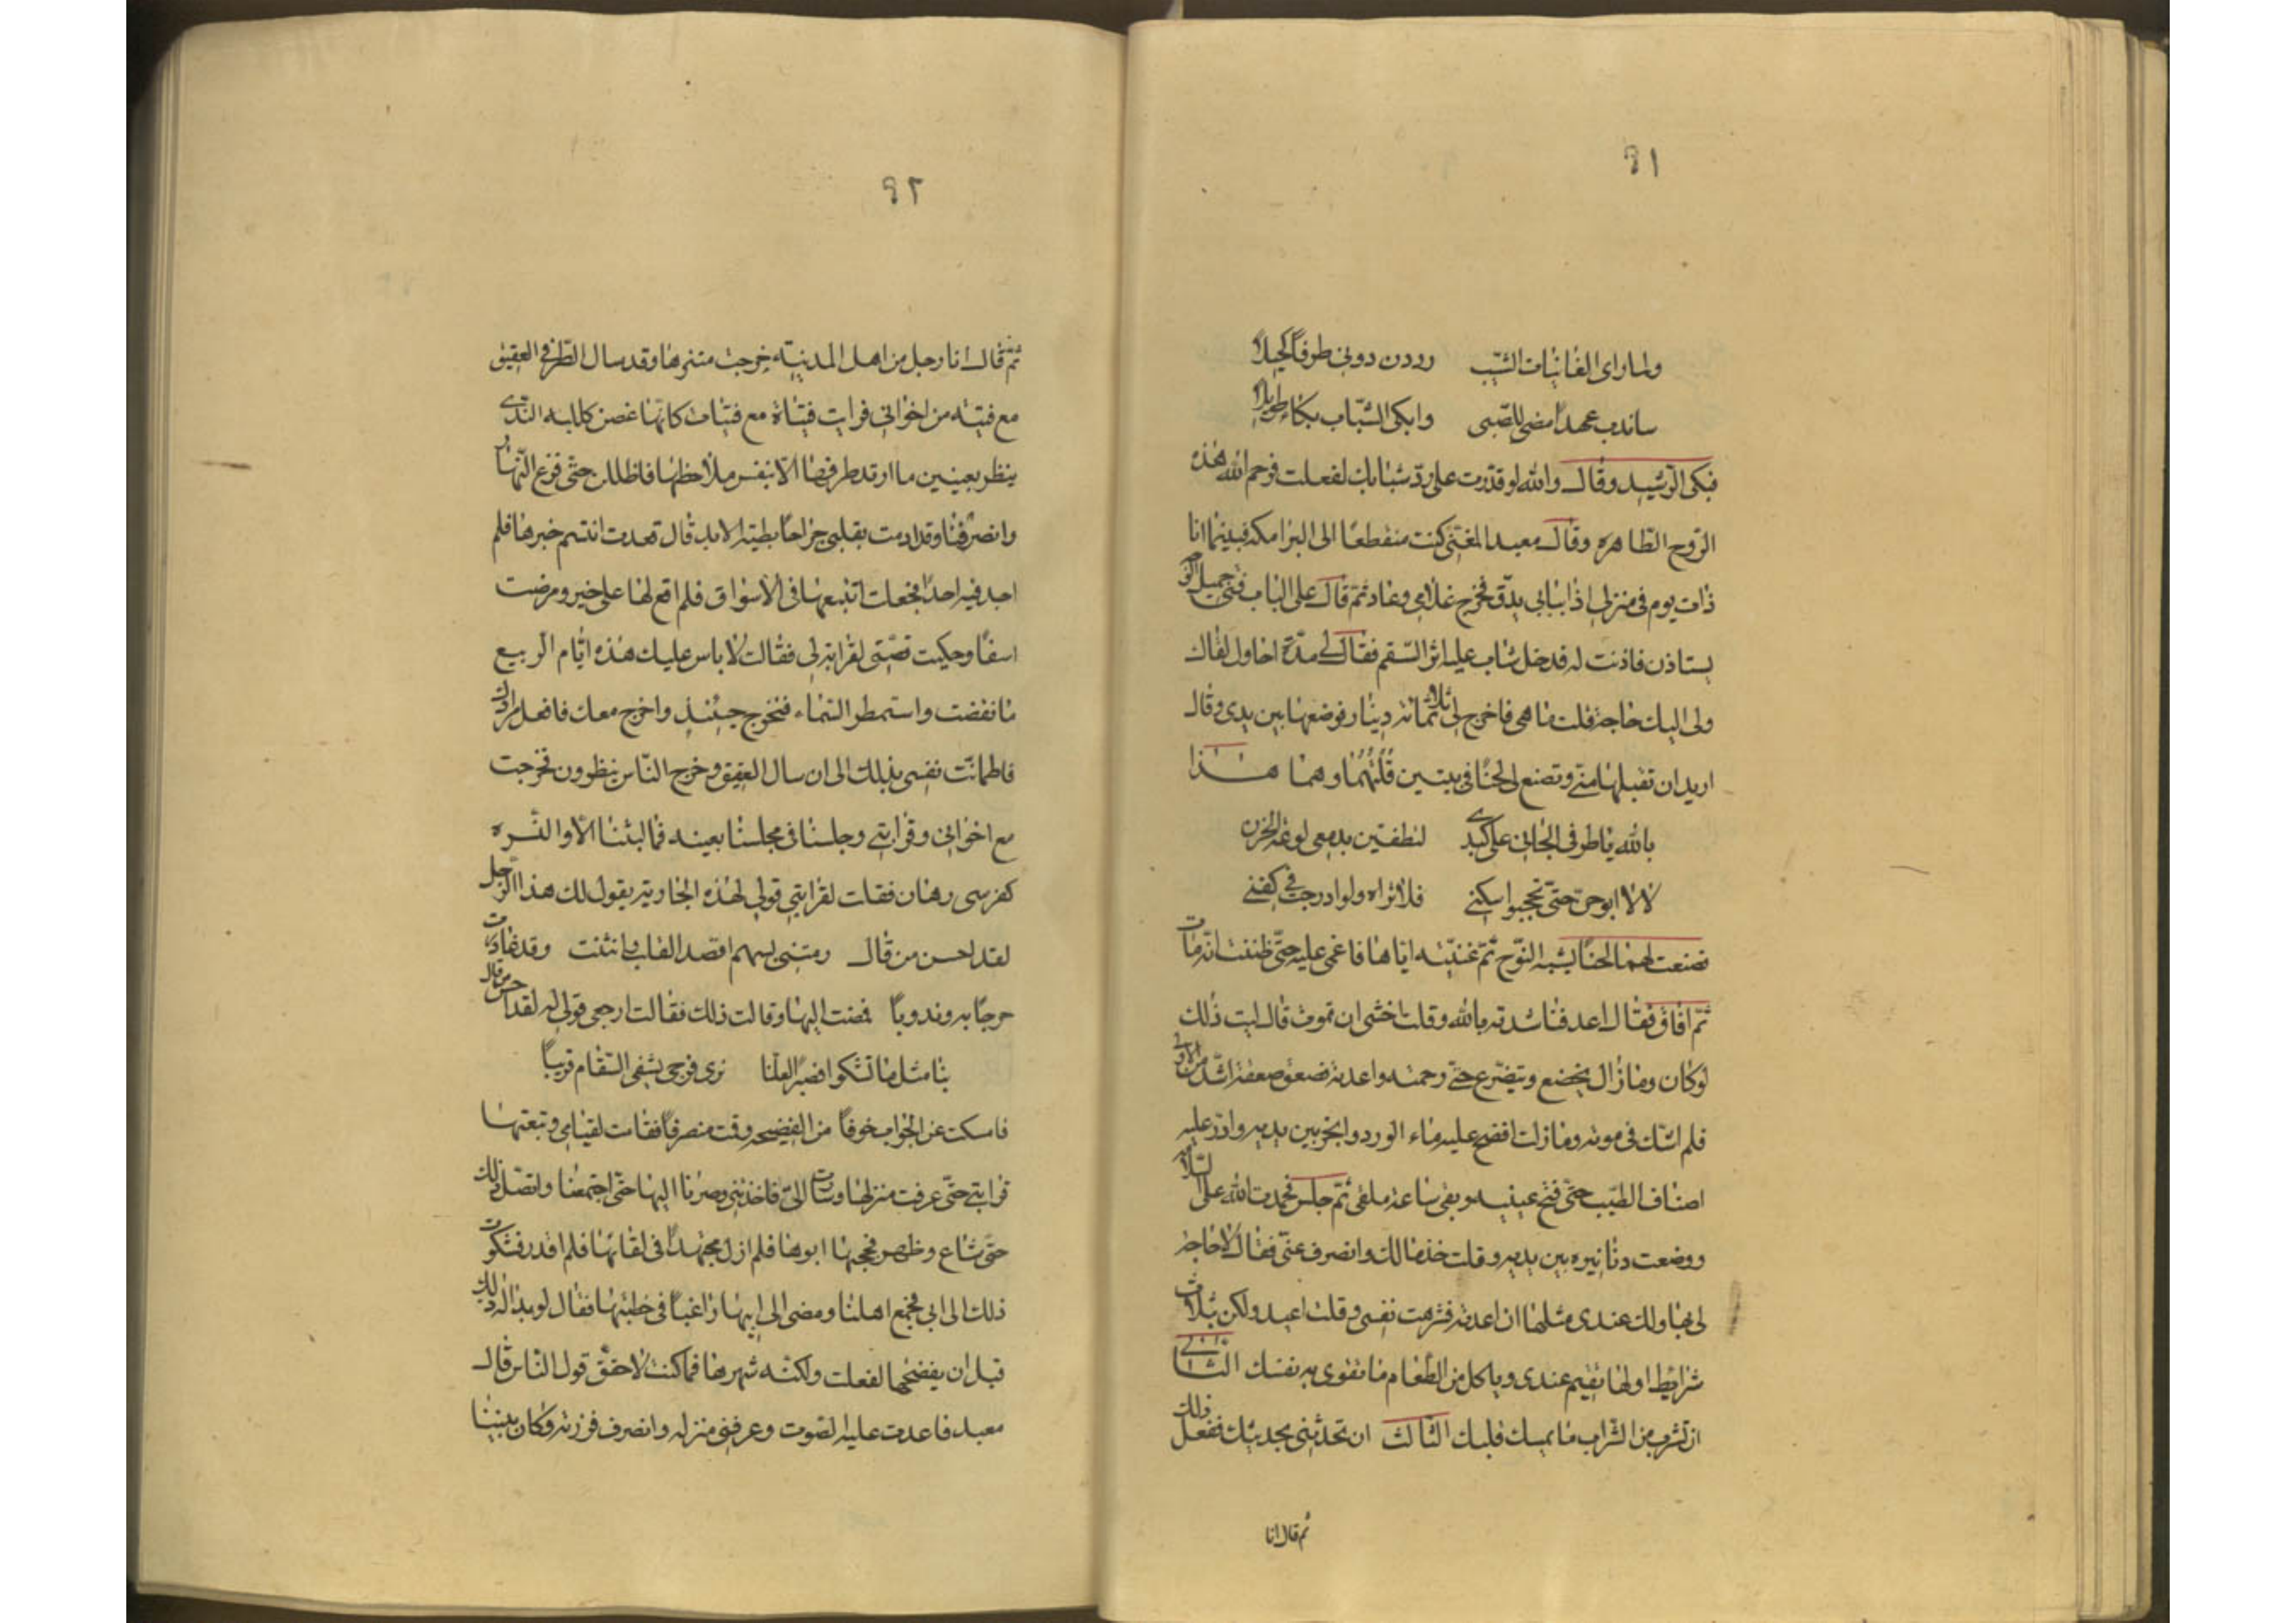 ٩١
ولما راى الغانيات الشيب رددن دونى طرفاً كحيلاً
ساندب عهداً مضى للصبى وابكى الشباب بكاء طويلا
فبكى الرشيد وقال والله لو قدرت على رد شبابك لفعلت فرحم الله هذه
الروح الطاهره وقال معبد المغنى كنت منقطعاً الى البرامكه فبينما انا
ذات يوم فى منزلى اذا بابى يدق فخرج غلامى وعاد ثم قال على الباب فتى جميل
يستاذن فاذنت له فدخل شاب عليه اثر السقم فقال لى مدة احاول لقاك
ولى اليك حاجة فقلت ما هى فاخرج لى ثلاثمائة دينار فوضعها بين يدى وقال
اريد ان تقبلها منى وتصنع لى لحناً فى بيتين قلتهما وهما هذا
بالله يا طرفى الجانى على كبدى لتطفئن بدمعى لوعة الحزن
لا لا ابوحن حتى تحجبوا سكنى فلا اراه ولو ادرجت فى كفنى
فصنعت لهما لحناً يشبه النوح ثم غنيته اياها فاغمى عليه حتى ظننت انه مات
ثم افاق فقال اعد فناشدته بالله وقلت اخشى ان تموت قال ليت ذلك
لو كان وما زال يخضع ويتضرع حتى رحمته واعدته فصعق صعقة اشد من الاولى
فلم اشك فى موته وما زلت انضح عليه ماء الورد وابخر بين يديه وادر عليه
اصناف الطيب حتى فتح عينيه وبقى ساعة ملقى ثم جلس فحمدت الله على السلامة
ووضعت دنانيره بين يديه وقلت خذ مالك وانصرف عنى فقال لا حاجة
لى بها ولك عندى مثلها ان اعدته فشرهت نفسى وقلت اعيد ولكن بثلاث
شرايط اولها تقيم عندى وياكل من الطعام ما تقوى به نفسك الثانى
ان تشرب من الشراب ما يمسك قلبك الثالث ان تحدثنى بحديثك ففعل ذلك
ثم قال انا
٩٢
ثم قال انا رجل من اهل المدينة خرجت متنزها وقد سال القطر فى العقيق
مع فتية من اخوانى فرايت فتاة مع فتيات كانها غصن كلله الندى
ينظر بعينين ما ارتد طرفهما الا بنفس ملاحظهما فاظللن حتى فرغ النهار
وانصرفنا وقد ادمت بقلبى جراحا بطيئة الاندمال فعدت اتنسم خبرها فلم
احد فيه احداً فجعلت اتتبعها فى الاسواق فلم اقع لها على خبر ومرضت
اسفاً وحكيت قصتى لقرابة لى فقالت لا باس عليك هذه ايام الربيع
ما نقضت واستمطر السماء فتخرج حينئذ واخرج معك فافعل مرادك
فاطمانت نفسى بذلك الى ان سال العقيق وخرج الناس ينظرون فخرجت
مع اخوانى وقرابتى وجلسنا فى مجلسنا بعينه فما لبثنا الا والنسوه
كفرسى رهان فقلت لقرابتى قولى لهذه الجارية يقول لك هذا الرجل
لقد احسن من قال رمتنى بسهم اقصد القلب وانثنت وقد غادرت
جرحاً به وندوباً فمضت اليها وقالت ذلك فقالت ارجعى قولى له لقد احسن من قال
بنا مثل ما تشكوا فصبراً لعلنا نرى فرجى يشفى السقام قريباً
فامسكت عن الجواب خوفاً من الفضيحة وقمت منصرفاً فقامت لقيامى وتبعتها
قرابتى حتى عرفت منزلها وسارت الى فاخذتنى وصرنا اليها حتى اجتمعنا واتصل ذلك
حتى شاع وظهر فحجبها ابوها فلم ازل مجتهداً فى لقائها فلم اقدر فشكوت
ذلك الى ابى فجمع اهلنا ومضى الى ابيها راغباً فى خطبتها فقال لو بدا له ذلك
قبل ان يفضحها لفعلت ولكنه شهرها فما كنت لاحقق قول الناس قال
معبد فاعدت عليه الصوت وعرفنى منزله وانصرف فزرته وكان بيننا